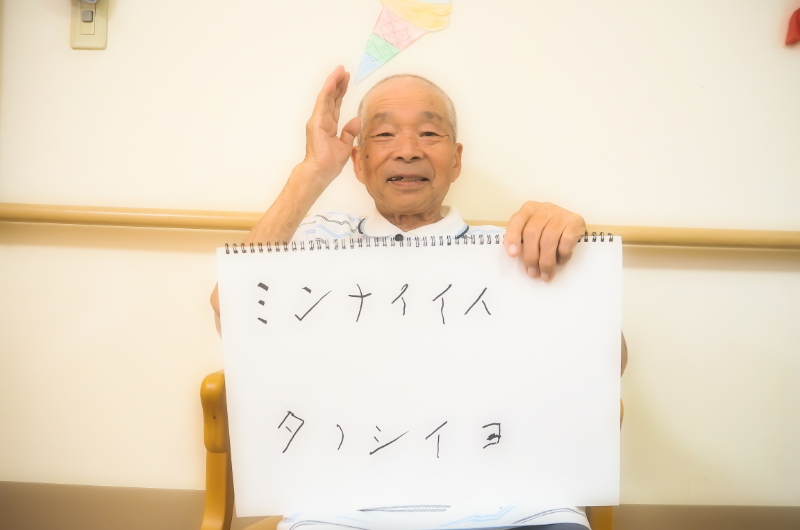 ミンナイイ人
タノシイヨ